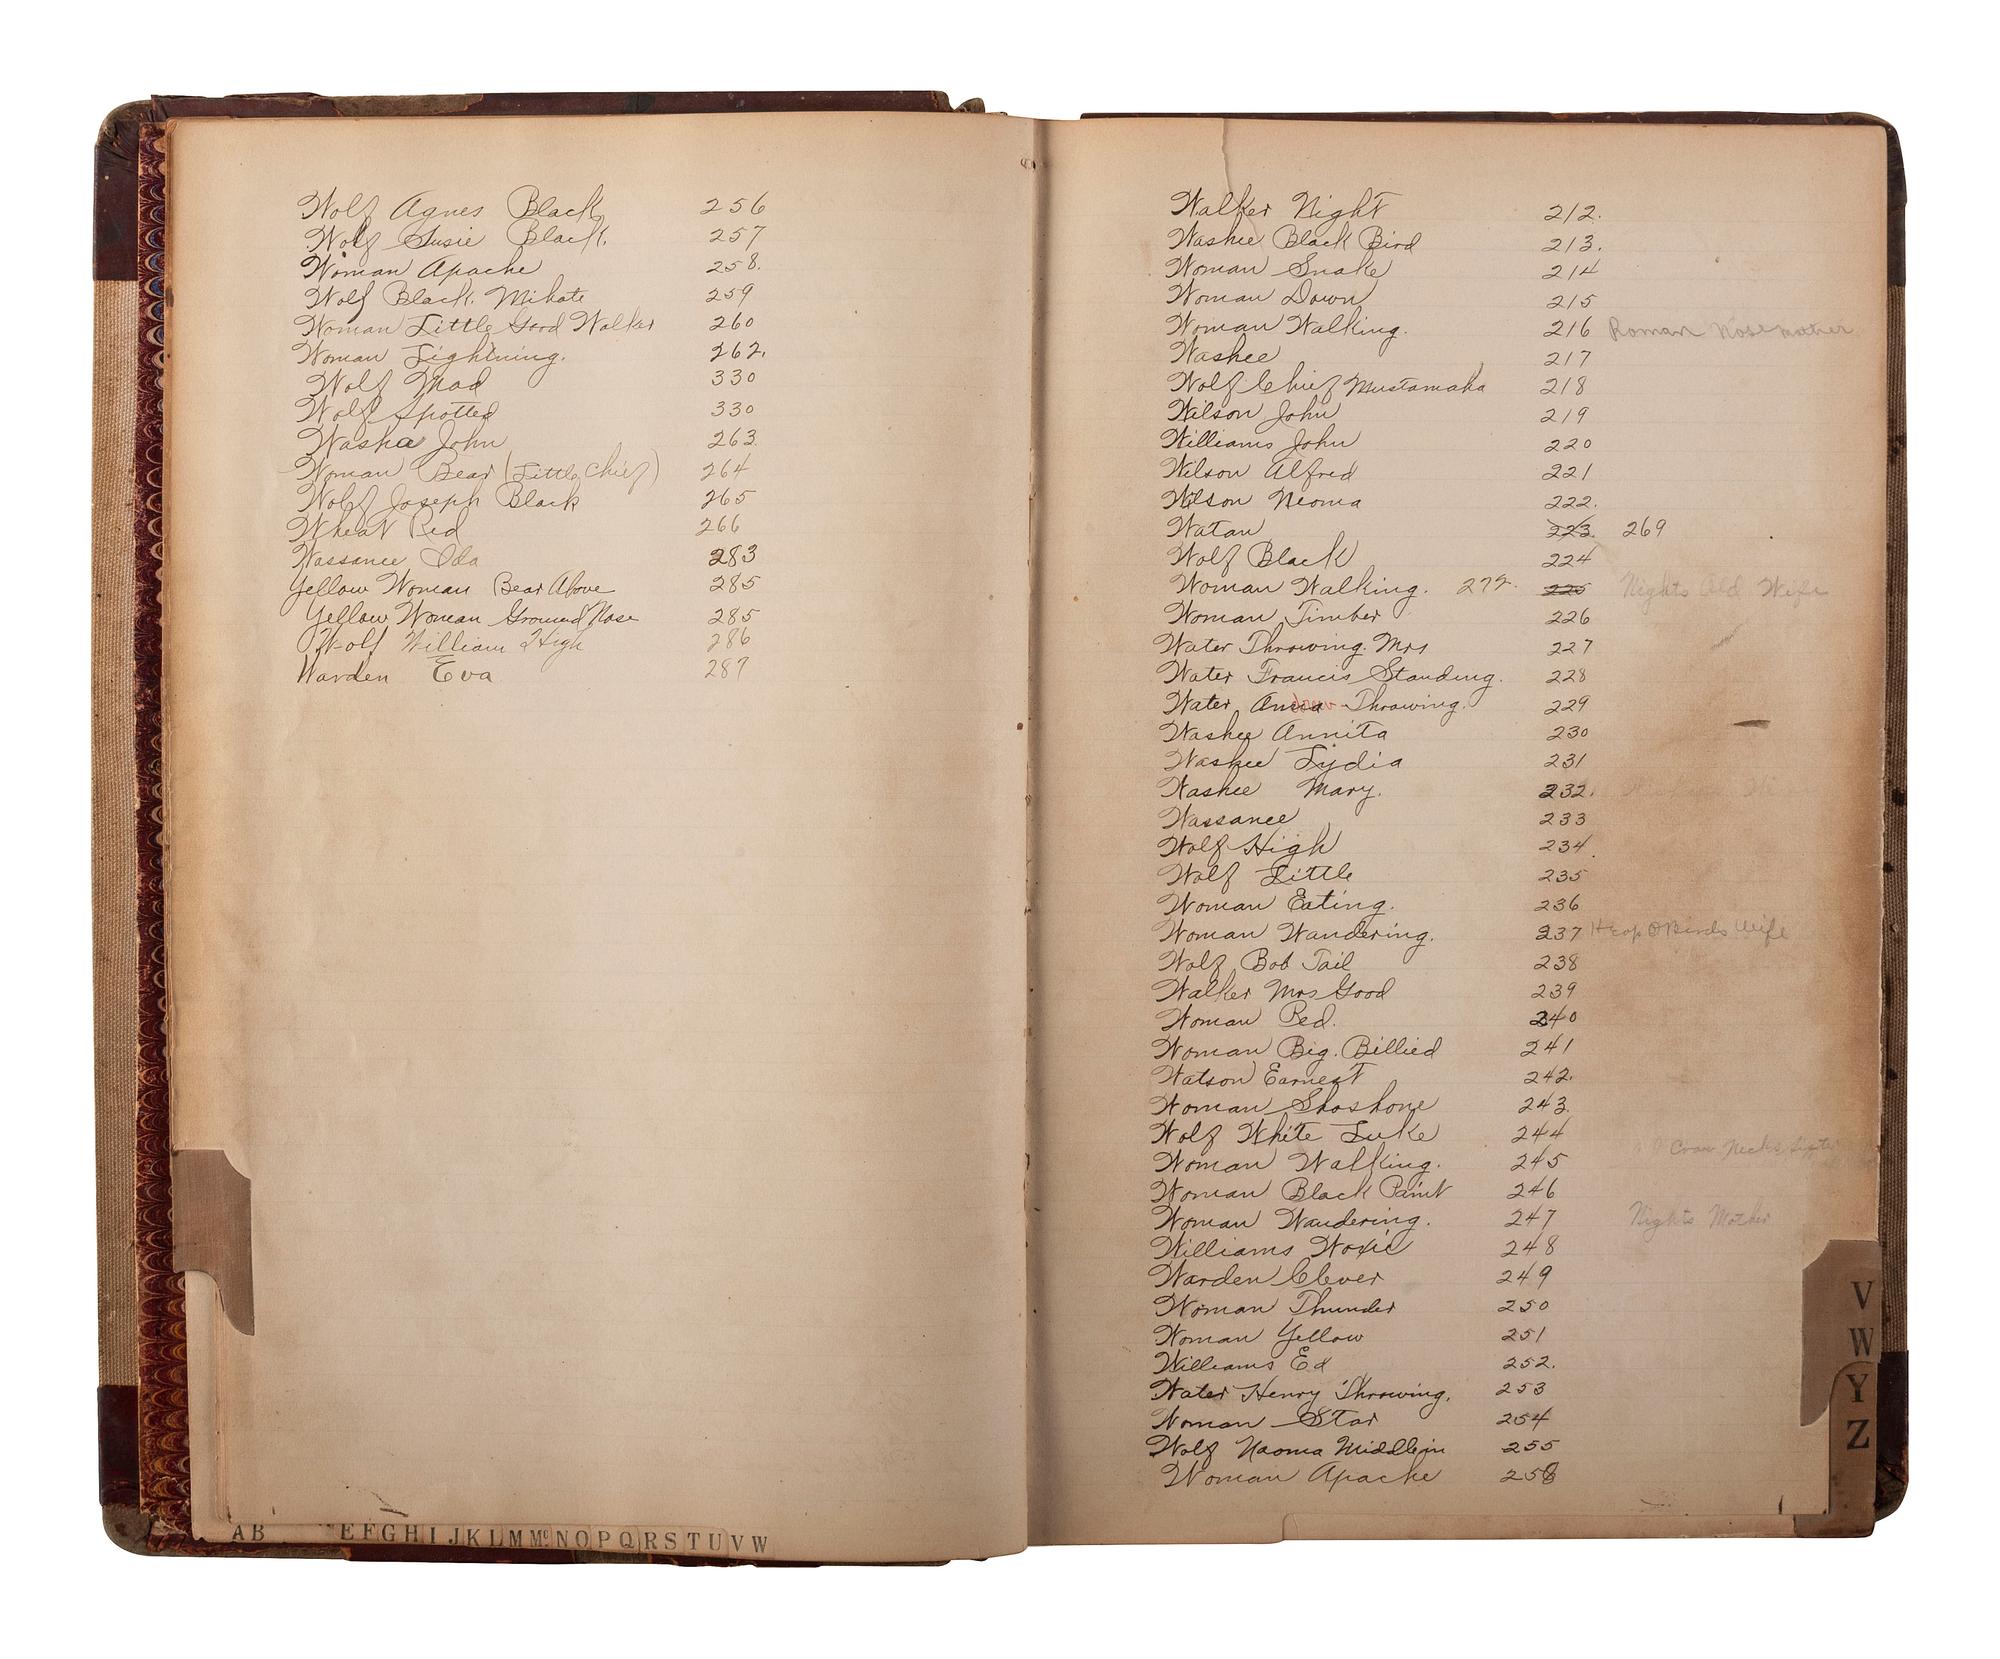 Wolf Agnes Black 256
Wolf Susie Black. 257
Woman Apache 258.
Wolf Black. Mihate 259
Woman Little Good Walker 260
Woman Lightning. 262.
Wolf Mad 330
Wolf Spotted 330
Washa John 263.
Woman Bear (Little Chief) 264
Wolf Joseph Black 265
Wheat Red 266
Wassanee Ida 283
Yellow Woman Bear Above 285
Yellow Woman Ground Nose 285
Wolf William High 286
Warden Eva 287
AB EFGHIJKLMMcNOPQRSTUVW
Walker Night 212.
Washee Black Bird 213.
Woman Snake 214
Woman Down 215
Woman Walking. 216 Roman Nose mother
Washee 217
Wolf Chief Mustamaha 218
Wilson John 219
Williams John 220
Wilson Alfred 221
Wilson Neoma 222.
Watan 223. 269
Wolf Black 224
Woman Walking. 272. 225 Nights Old Wife
Woman Timber 226
Water Throwing. Mrs 227
Water Francis Standing. 228
Water Throwing. 229
Washee Annita 230
Washee Lydia 231
Washee Mary. 232.
Wassanee 233
Wolf High 234
Wolf Little 235
Woman Eating. 236
Woman Wandering. 237 Heap O Birds Wife
Wolf Bob Tail 238
Walker Mrs Good 239
Woman Red. 240
Woman Big. Billied 241
Watson Earnest 242.
Woman Shoshone 243.
Wolf White Luke 244
Woman Walking. 245 Crow Necks sister
Woman Black Paint 246
Woman Wandering. 247 Nights Mother
Williams Woxie 248
Warden Clever 249
Woman Thunder 250
Woman Yellow 251
Williams Ed 252.
Water Henry Throwing. 253
Woman Star 254
Wolf Naoma Middlein 255
Woman Apache 258
V
W
Y
Z